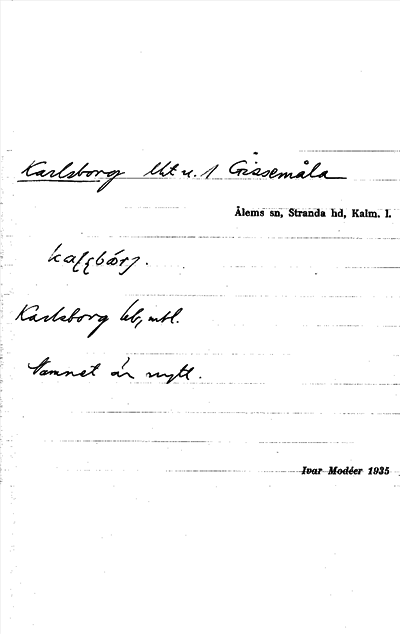 Karlsborg lht u. 1 Gissemåla
Ålems sn, Stranda hd, Kalm. l.
Karlsborg lb, mtl.
Namnet är nytt.
Ivar Modéer 1935